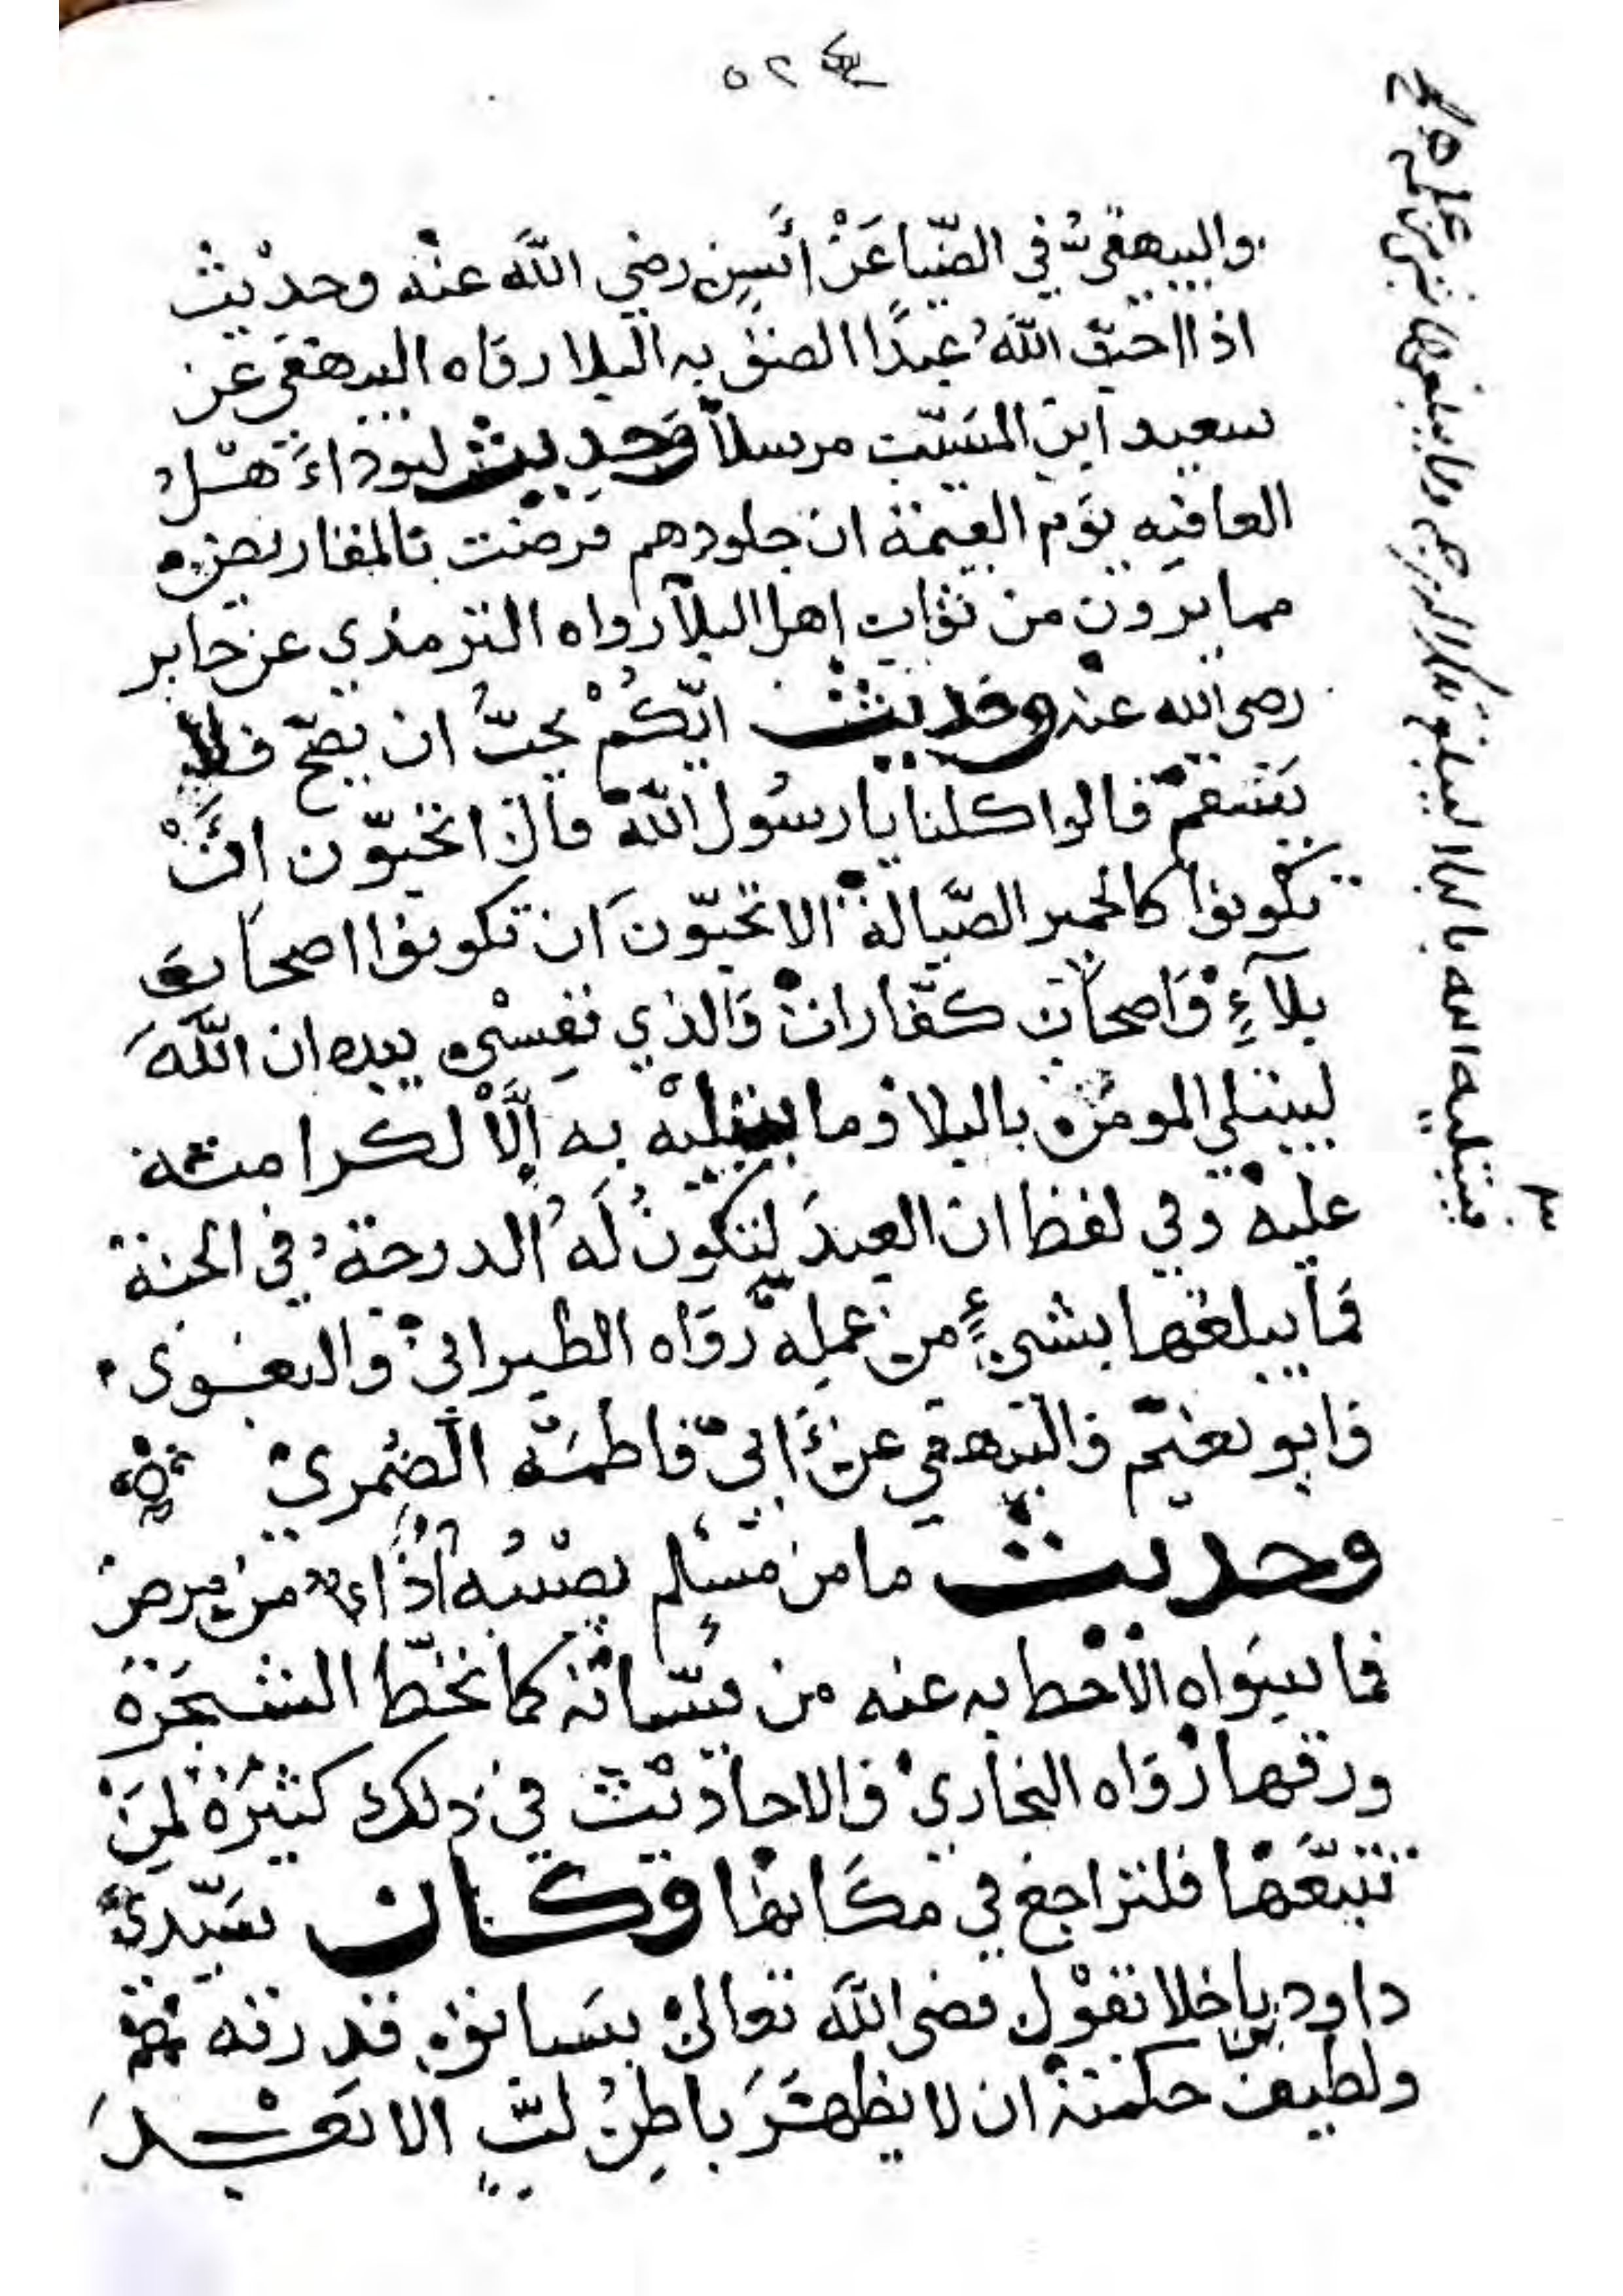 ٥٢
والبيهقي في الضيا عَنْ انَسٍ رضي اللّه عنْه وحديْث
اذا احبّ اللّهُ عبدًا الصق به البلا رواه البيهقي عن
سعيد ابن المسَيّب مرسلاً وَحديث ليودّاء هْل
العافيه يوَم القيمة ان جلودهم قرضت بالمقاريض
مما يرون من ثواب اهل البلآ رواه الترمذي عن جابر
رضى الله عنه وحديث ايّكُمْ يحبُّ ان يصحّ فلا
يَسقمْ قالوا كلنا يا رسُول اللّه قال اتحبّون انَّ
تكونوا كالحمير الصَّيالة الا تحبّونَ ان تكونوا اصحاب
بلآءٍ وَاصحاب كفّارات وَالذي نفسْي بيده ان اللّهَ
ليبتلي المومن بالبلا وما يبتليْه به اِلَّا لكرامته
عليه وفي لفظ ان العبدَ لتكونُ لَهُ الدرجة في الجنة
فما يبلغها بشيءٍ من عملِه رَوَاه الطبراني والبغوى
وابو نعيم والبيهقي عن ابي فاطمَة الضُمري
وحديث ما من مسْلم يصْيبُه اذًاء من مرض
فما سِوَاه الا حط به عنه من سيّاته كما تحُطّ الشجَرَة
ورقها رَوَاه البخاري والاحاديْث في ذلك كثيرَة لمِنَ
تتبّعَهْا فلتراجع في مكَانها وكان سَيّدي
داود باخلا يقوْل قضى اللّه تعالى بسَابق قدرته
ولطيف حكمته ان لا يظهَرَ باطِنُ لبٍّ الا بَعْدَ
يبتليه الله بالبلا ليبلغ تلك الدرجه وما يبلغها بشي من عمله صح